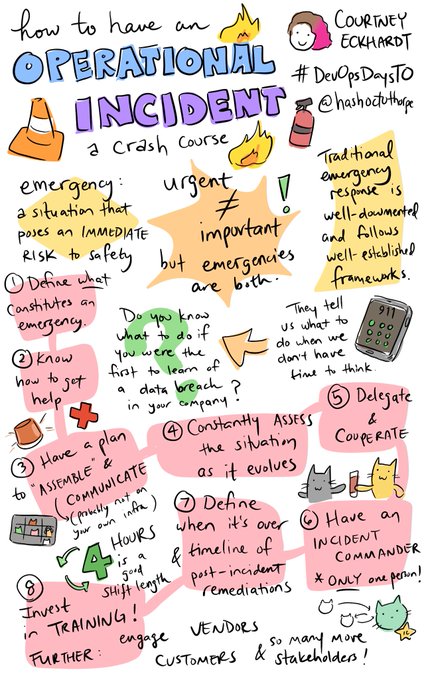 how to have an
OPERATIONAL
INCIDENT
a crash course
COURTNEY
ECKHARDT
#DevOpsDaysTO
@hashoctothorpe
emergency:
a situation that
poses an IMMEDIATE
RISK to safety
urgent
≠
important
but emergencies
are both.
!
Traditional
emergency
response is
well-documented
and follows
well-established
frameworks.
① Define what
constitutes an
emergency.
Do you know
what to do if
you were the
first to learn of
a data breach
in your company?
?
They tell
us what to
do when we
don't have
time to think.
911
② Know
how to get
help
③ Have a plan
to "ASSEMBLE" &
COMMUNICATE
(probably not on
your own infra)
④ Constantly ASSESS
the situation
as it evolves
⑤ Delegate
& COOPERATE
4 HOURS
is a
good
shift length
⑥ Have an
INCIDENT
COMMANDER
* ONLY one person!
IC
⑦ Define
when it's over
& timeline of
post-incident
remediations
⑧ Invest
in TRAINING!
FURTHER: engage VENDORS
CUSTOMERS & so many more
stakeholders!